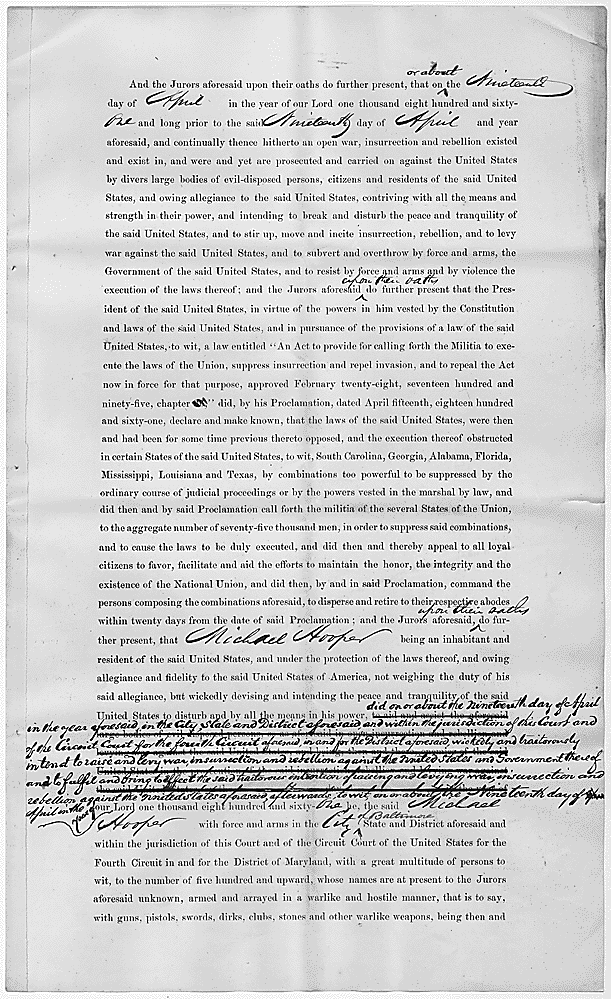 or about
And the Jurors aforesaid upon their oaths do further present, that on the Nineteenth
day of April in the year of our Lord one thousand eight hundred and sixty-
One and long prior to the said Nineteenth day of April and year
aforesaid, and continually thence hitherto an open war, insurrection and rebellion existed
and exist in, and were and yet are prosecuted and carried on against the United States
by divers large bodies of evil-disposed persons, citizens and residents of the said United
States, and owing allegiance to the said United States, contriving with all the means and
strength in their power, and intending to break and disturb the peace and tranquility of
the said United States, and to stir up, move and incite insurrection, rebellion, and to levy
war against the said United States, and to subvert and overthrow by force and arms, the
Government of the said United States, and to resist by force and arms and by violence the
upon their oaths
execution of the laws thereof; and the Jurors aforesaid do further present that the Pres-
ident of the said United States, in virtue of the powers in him vested by the Constitution
and laws of the said United States, and in pursuance of the provisions of a law of the said
United States, to wit, a law entitled "An Act to provide for calling forth the Militia to exe-
cute the laws of the Union, suppress insurrection and repel invasion, and to repeal the Act
now in force for that purpose, approved February twenty-eight, seventeen hundred and
ninety-five, chapter " did, by his Proclamation, dated April fifteenth, eighteen hundred
and sixty-one, declare and make known, that the laws of the said United States, were then
and had been for some time previous thereto opposed, and the execution thereof obstructed
in certain States of the said United States, to wit, South Carolina, Georgia, Alabama, Florida,
Mississippi, Louisiana and Texas, by combinations too powerful to be suppressed by the
ordinary course of judicial proceedings or by the powers vested in the marshal by law, and
did then and by said Proclamation call forth the militia of the several States of the Union,
to the aggregate number of seventy-five thousand men, in order to suppress said combinations,
and to cause the laws to be duly executed, and did then and thereby appeal to all loyal
citizens to favor, facilitate and aid the efforts to maintain the honor, the integrity and the
existence of the National Union, and did then, by and in said Proclamation, command the
persons composing the combinations aforesaid, to disperse and retire to their respective abodes
upon their oaths
within twenty days from the date of said Proclamation; and the Jurors aforesaid, do fur-
ther present, that Michael Hooper being an inhabitant and
resident of the said United States, and under the protection of the laws thereof, and owing
allegiance and fidelity to the said United States of America, not weighing the duty of his
said allegiance, but wickedly devising and intending the peace and tranquility of the said
did on or about the Nineteenth day of April
United States to disturb and by all the means in his power,
in the year aforesaid, in the City, State and District aforesaid and within the jurisdiction of this Court and
of the Circuit Court for the fourth Circuit aforesaid in and for the District aforesaid, wickedly and traitorously
intend to raise and levy war, insurrection and rebellion against the United States and Government thereof
and to fulfil and bring to effect the said traitorous intention of raising and levying war, insurrection and
rebellion against the United States aforesaid afterwards, to wit on or about the Nineteenth day of
April in the year of our Lord one thousand eight hundred and sixty-One he, the said Michael
of Baltimore
Hooper with force and arms in the City State and District aforesaid and
within the jurisdiction of this Court and of the Circuit Court of the United States for the
Fourth Circuit in and for the District of Maryland, with a great multitude of persons to
wit, to the number of five hundred and upward, whose names are at present to the Jurors
aforesaid unknown, armed and arrayed in a warlike and hostile manner, that is to say,
with guns, pistols, swords, dirks, clubs, stones and other warlike weapons, being then and